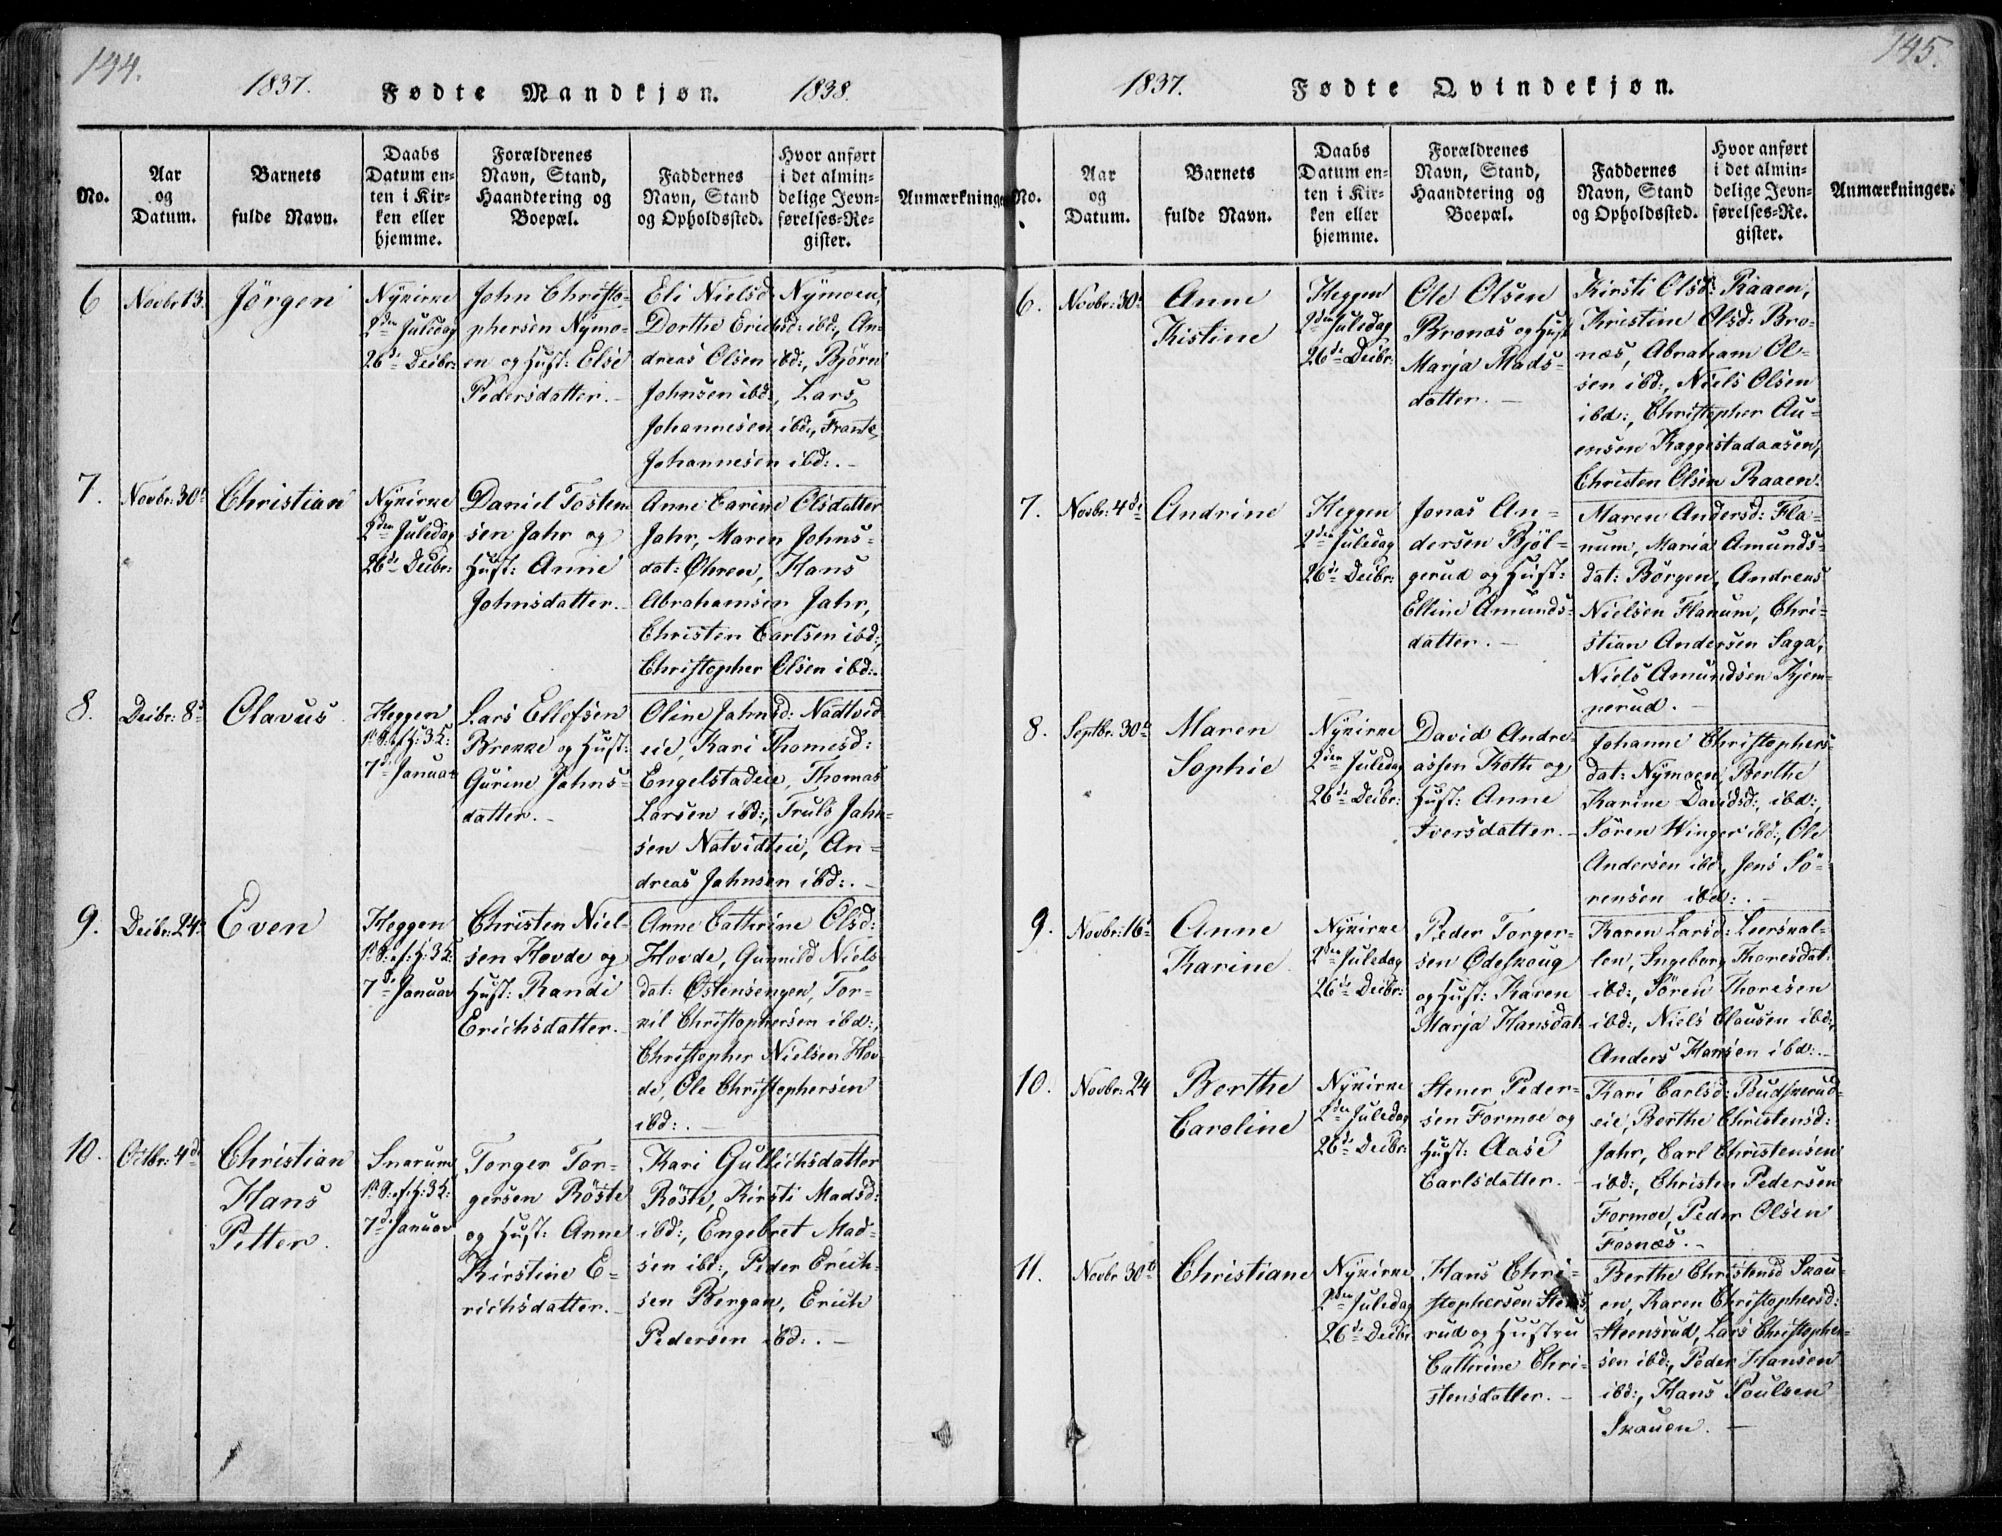 144.
1837.
Fødte Mandkjøn.
1838.
No.
Aar
og
Datum.
Barnets
fulde Navn.
Daabs
Datum en-
ten i Kir-
ken eller
hjemme.
Forældrenes
Navn, Stand,
Haandtering og
Boepæl.
Faddernes
Navn, Stand
og Opholdssted.
Hvor anført
i det almin-
delige Jevn-
førelses-Re-
gister.
Anmærkninger
6
Novbr 13
Jörgen
Nykirke
2den Juledag
26de Decbr:
John Christo-
phersen Nymo-
en og Hust: Else
Pedersdatter.
Eli Nielsd: Nymoen,
Dorthe Erichsd: ibd:, An-
dreas Olsen ibd:, Björn
Johnsen ibd:, Lars
Johannesen ibd:, Frants
Johannesen ibd:.
7.
Novbr: 30te
Christian
Nykirke
2den Juledag
26de Decbr:
Daniel Tosten
sen Jahr og
Hust: Anne
Johnsdatter.
Anne Carine Olsdatter
Jahr, Maren Johns-
dat: Øhren, Hans
Abrahamsen Jahr,
Christen Carlsen ibd:,
Christopher Olsen ibd:.
8.
Decbr: 8de
Olavus
Heggen
1ste S: ef: H: 3K:
7de Januar
Lars Ellofsen
Brekke og Hust:
Gurine Jahns-
datter.
Oline Jahnsd: Nadtvid
eie, Kari Thomesd:
Engelstadeie, Thomas
Larsen ibd:, Truls Jahn-
sen Natvidteie, An-
dreas Jahnsen ibd:.
9.
Decbr: 24de
Even
Heggen
1ste S: ef: H: 3K:
7de Januar
Christen Niel-
sen Hovde og
Hust: Randi
Erichsdatter.
Anne Cathrine Olsd:
Hovde, Gunnild Niels
dat: Østensengen, Tor-
kil Christophersen ibd:,
Christopher Nielsen Hov
de, Ole Christophersen
ibd:.
10.
Octbr: 4de
Christian
Hans
Petter.
Snarum
1ste S: ef: H: 3K:
7de Januar
Torger Tor-
gersen Röste
og Hust: Anne
Kirstine E-
richsdatter.
Kari Gullichsdatter
Röste, Kirsti Madsd:
ibd:, Engebret Mad-
sen ibd:, Peder Erich-
sen Bergan, Erich
Pedersen ibd:.
145.
1837.
Fødte Qvindekjøn.
No.
Aar
og
Datum.
Barnets
fulde Navn.
Daabs
Datum en-
ten i Kir-
ken eller
hjemme.
Forældrenes
Navn, Stand,
Haandtering og
Boepæl.
Faddernes
Navn, Stand
og Opholdssted.
Hvor anført
i det almin-
delige Jevn-
førelses-Re-
gister.
Anmærkninger.
6.
Novbr: 30te
Anne
Kistine
Heggen
2den Juledag
26de Decbr:
Ole Olsen
Bronæs og Hust
Marja Mads-
datter.
Kirsti Olsd: Raaen,
Kristine Olsd: Bro-
næs, Abraham Ol-
sen ibd:, Niels Olsen
ibd:, Christopher Au-
ensen Kaggestadaasen,
Christen Olsen Raaen.
7.
Novbr: 4de
Andrine
Heggen
2den Juledag
26de Decbr:
Jonas An-
dersen Bjöl-
gerud og Hust:
Elline Amunds-
datter.
Maren Andersd: Fla-
num, Maria Amunds-
dat: Börgen, Andreas
Nielsen Flanum, Chri-
stian Andersen Saga,
Niels Amundsen Kjem-
perud.
8.
Septbr: 30te
Maren
Sophie
Nykirke
2den Juledag
26de Decbr:
David Andre-
assen Koth og
Hust: Anne
Iversdatter.
Johanne Christophers-
dat: Nymoen, Berthe
Karine Davidsd:, ibd:,
Sören Winger ibd:, Ole
Andersen ibd:, Jens Sö-
rensen ibd:.
9.
Novbr: 16de
Anne
Karine.
Nykirke
2den Juledag
26de Decbr:
Peder Torger-
sen Odeskoug
og Hust: Karen
Marja Hansdat:
Karen Larsd: Leerskal-
len, Ingeborg Thoresdat:
ibd:, Sören Thoresen
ibd:, Niels Clausen ibd:,
Anders Hansen ibd:.
10.
Novbr: 24
Berthe
Caroline
Nykirke
2den Juledag
26de Decbr:
Stener Peder-
sen Formoe og
Hust: Aase
Carlsdatter.
Kari Carlsd: Budskerud-
eie, Berthe Christensd:
Jahr, Carl Christensen
ibd:, Christen Pedersen
Formoe, Peder Olsen
Fosnæs.
11.
Novbr 30te
Christiane
Nykirke
2den Juledag
26de Decbr
Hans Chri-
stophersen Steens
rud og Hustru
Cathrine Chri-
stensdatter.
Berthe Christensd Skou-
en, Karen Christophersd:
Steensrud, Lars Christopher-
sen ibd:, Peder Hansen
ibd:, Hans Poulsen
Skouen.